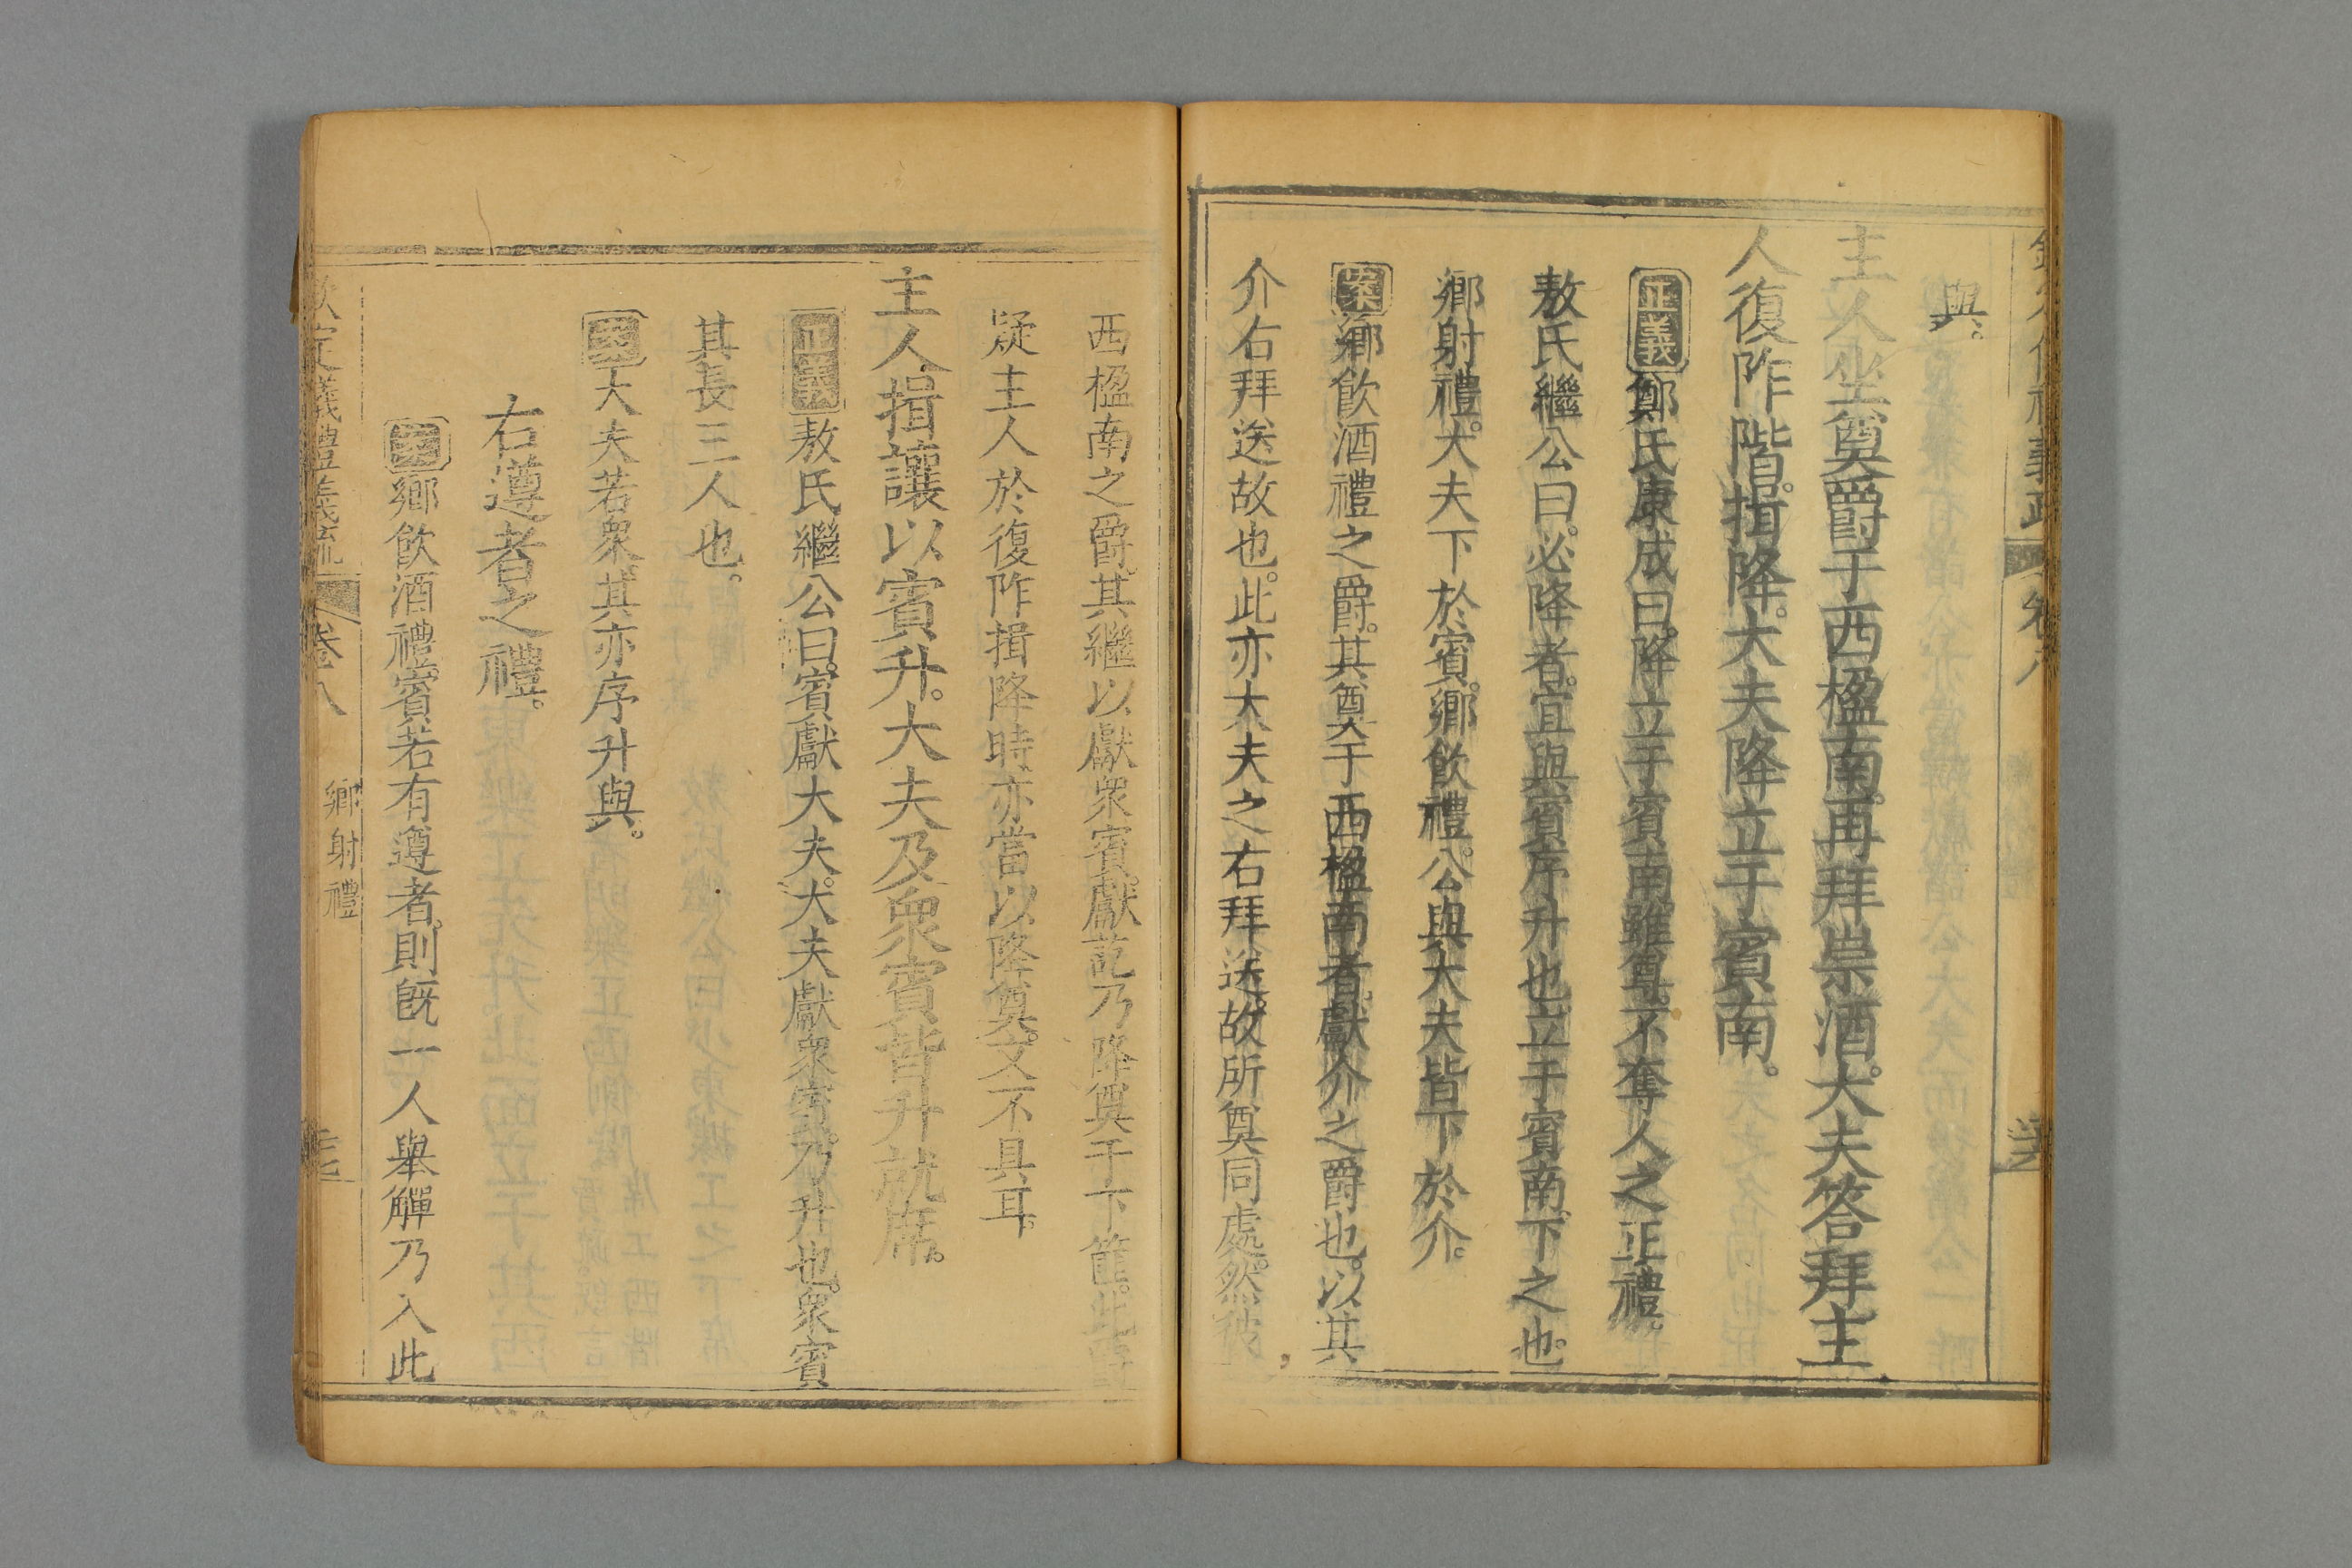 與。
主人坐奠爵于西楹南。再拜崇酒。大夫答拜。主
人復阼階。揖降。大夫降立于賓南。
正義鄭氏康成曰。降立于賓南。雖尊。不奪人之正禮。
敖氏繼公曰。必降者。宜與賓序升也。立于賓南。下之也。
鄉射禮。大夫下於賓。鄉飲禮。公與大夫皆下於介。
案鄉飲酒禮之爵。其奠于西楹南者。獻介之爵也。以其
介右拜送故也。此亦大夫之右拜送。故所奠同處。然彼
西楹南之爵。其繼以獻衆賓。獻訖乃降奠于下篚。此
疑主人於復阼揖降時。亦當以降奠。文不具耳。
主人揖讓以賓升。大夫及衆賓皆升就席。
正義敖氏繼公曰。賓獻大夫。大夫獻衆賓。乃升也。衆賓
其長三人也。
案大夫若衆。其亦序升與。
右遵者之禮。
案鄉飲酒禮。賓若有遵者。則旣一人舉觶乃入。此
欽定儀禮義疏 卷八 鄉射禮